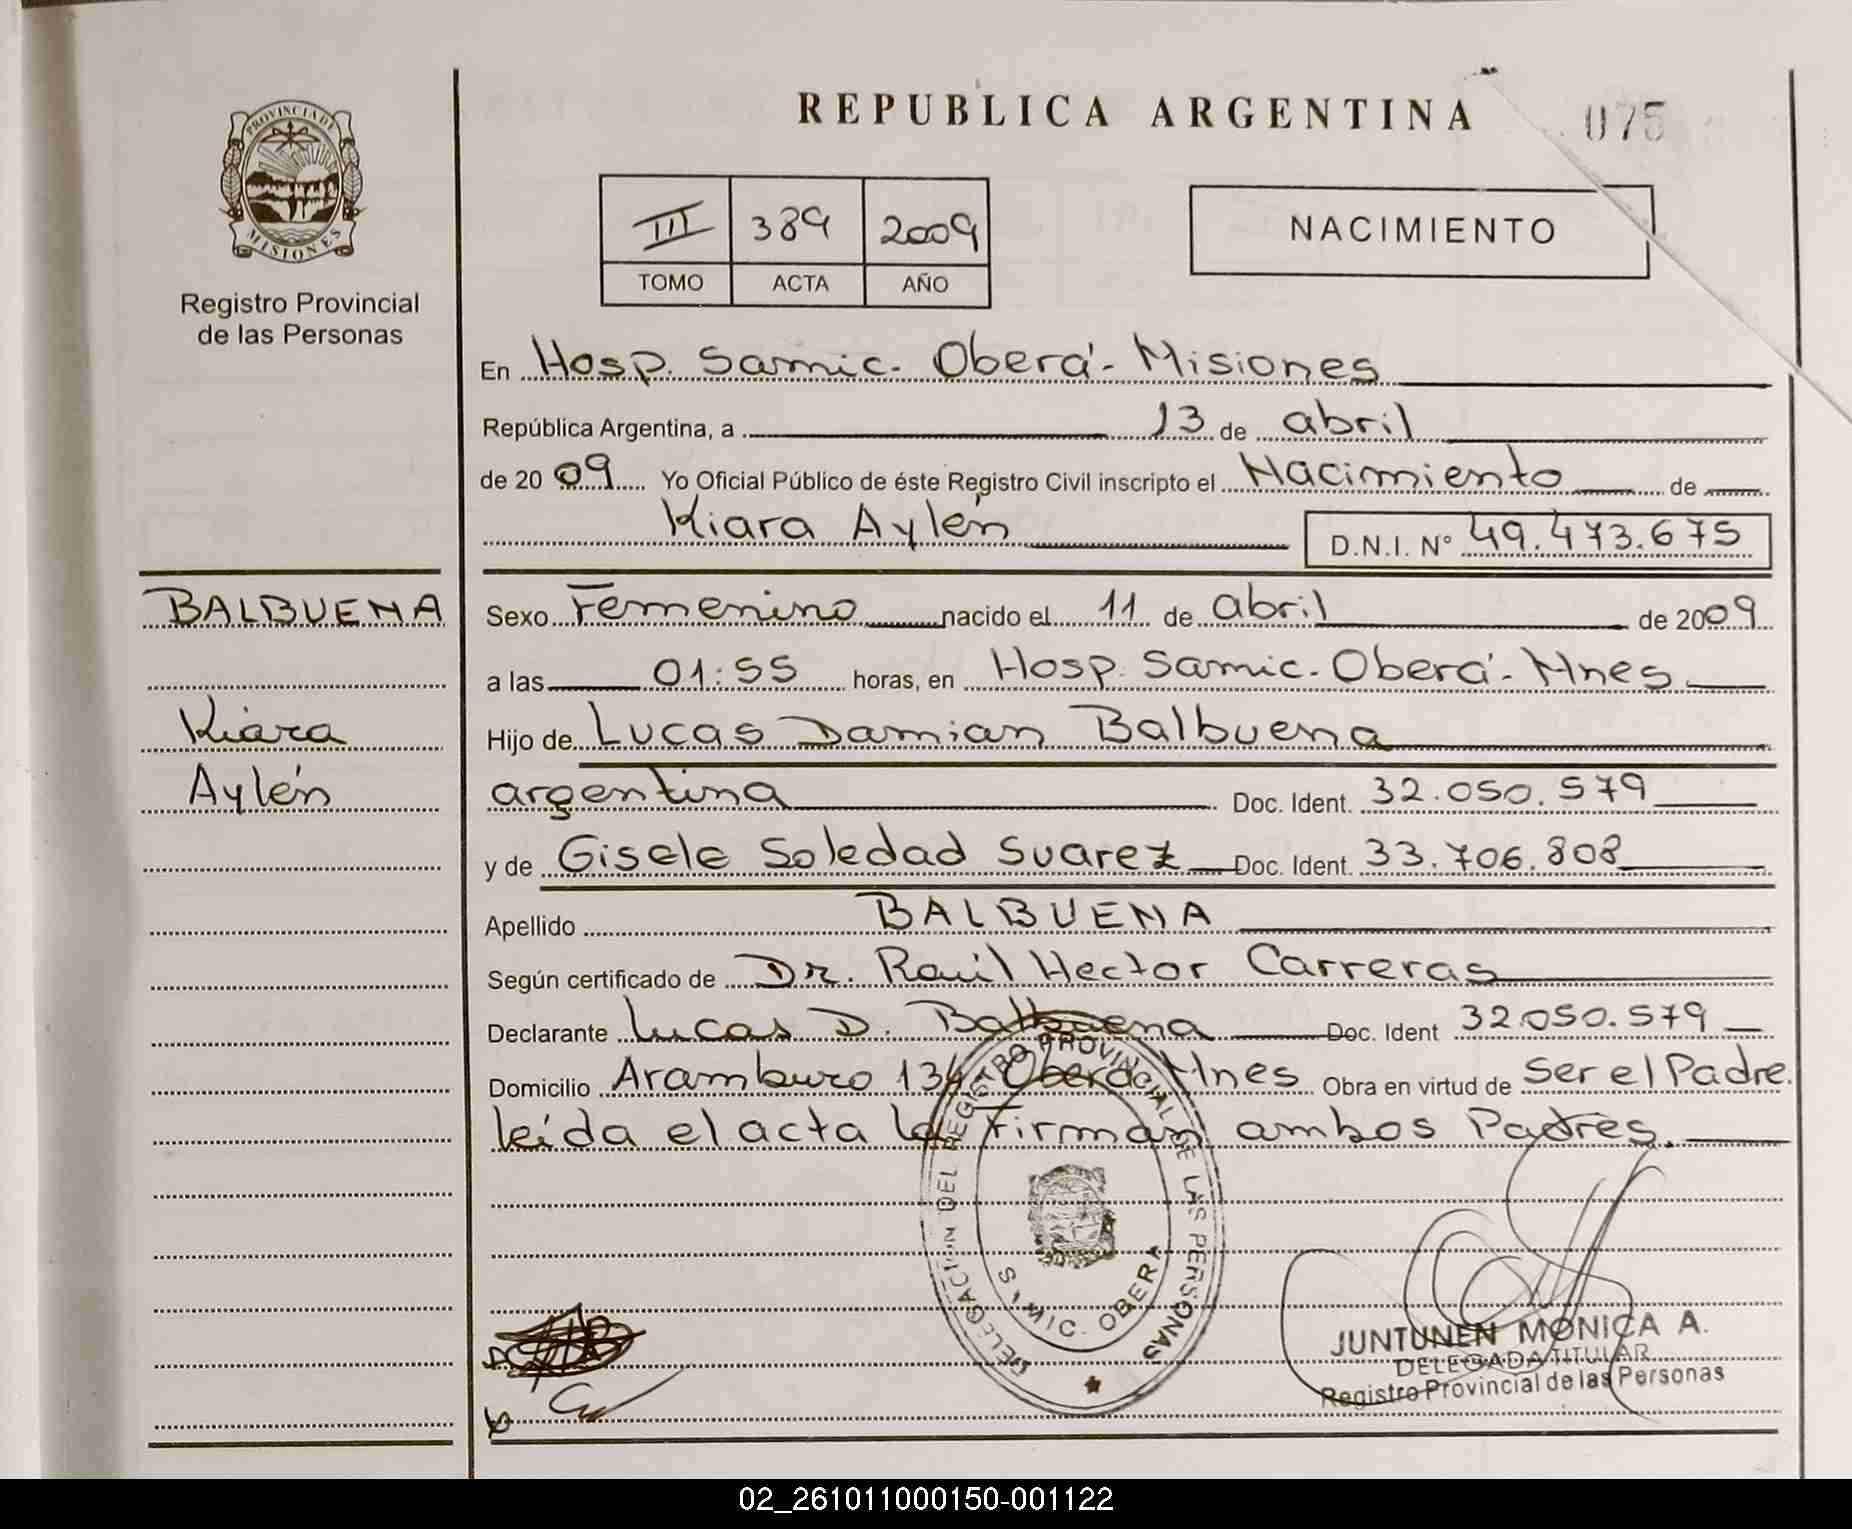 REPUBLICA ARGENTINA
075
PROVINCIA DE
MISIONES
Registro Provincial
de las Personas
III 389 2009
TOMO ACTA AÑO
NACIMIENTO
En Hosp. Samic. Oberá - Misiones
República Argentina, a 13 de abril
de 2009 Yo Oficial Público de éste Registro Civil inscripto el Nacimiento de
Kiara Aylén D.N.I. N° 49.473.675
BALBUENA
Kiara
Aylén
Sexo Femenino nacido el 11 de abril de 2009
a las 01:55 horas, en Hosp. Samic. Oberá - Mnes
Hijo de Lucas Damian Balbuena
argentina Doc. Ident. 32.050.579
y de Gisele Soledad Suarez Doc. Ident. 33.706.808
Apellido BALBUENA
Según certificado de Dr. Raúl Hector Carreras
Declarante Lucas D. Balbuena Doc. Ident 32.050.579
Domicilio Aramburo 134 Oberá Mnes Obra en virtud de Ser el Padre.
leída el acta la Firman ambos Padres.
DELEGACION DEL REGISTRO PROVINCIAL DE LAS PERSONAS
OBERA
JUNTUNEN MONICA A.
DELEGADA TITULAR
Registro Provincial de las Personas
02_261011000150-001122